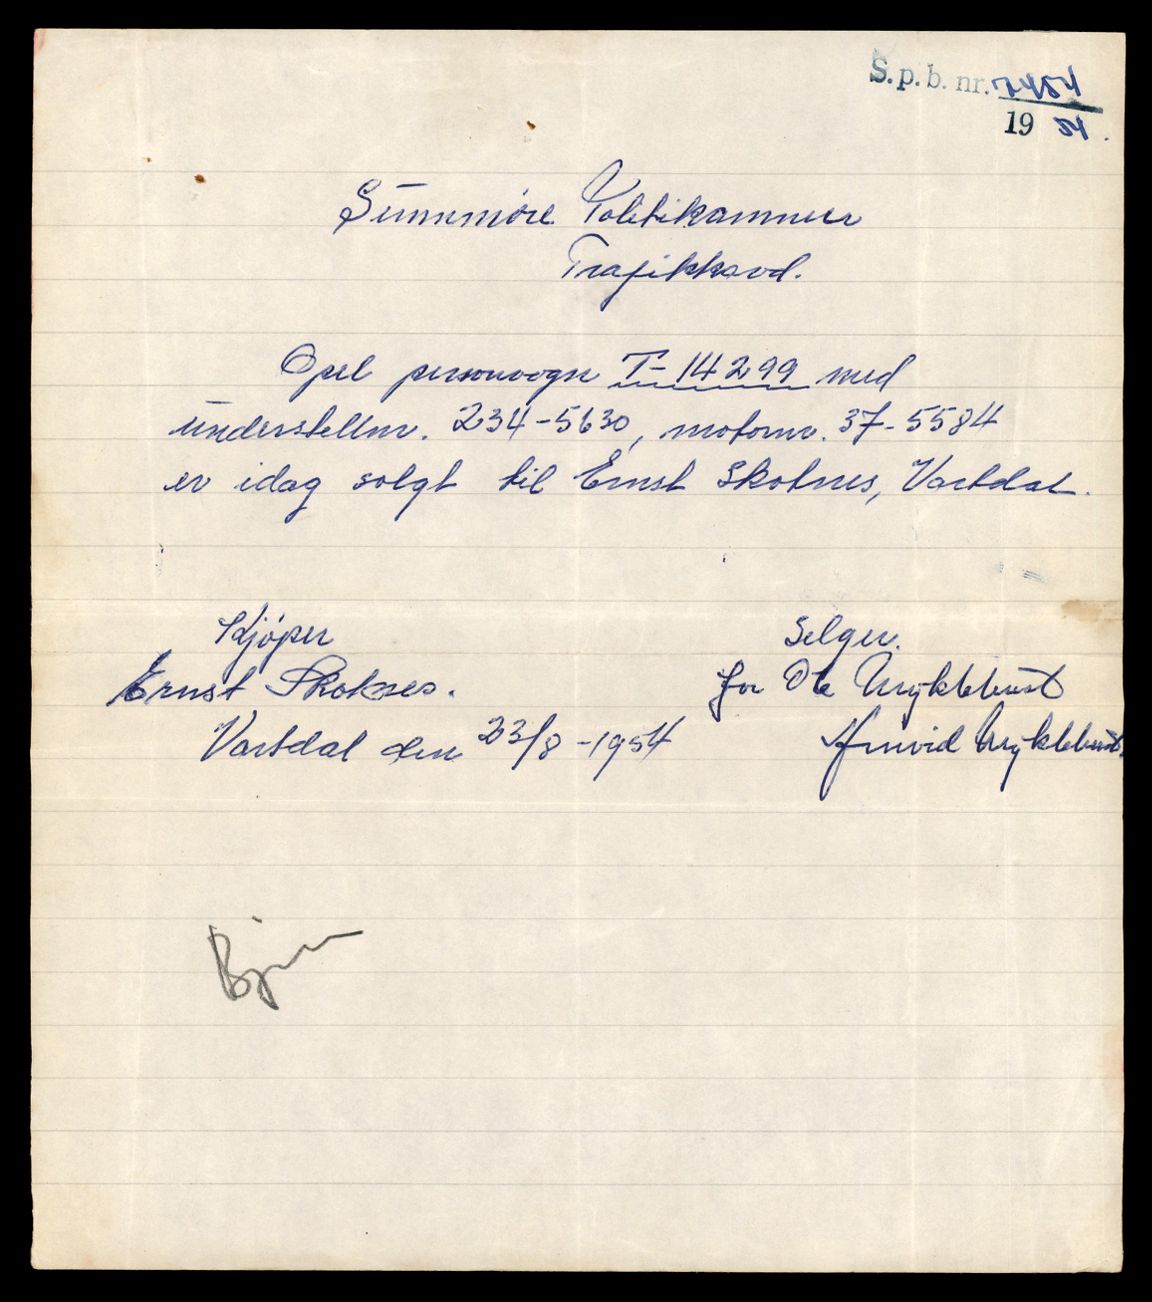 S.p.b. nr. 7454
19 54.
Sunnmöre Politikammer
Trafikkavd.
Opel personvogn T-14299 med
understellnr. 234-5630, motornr. 37-5584
er idag solgt til Ernst Skotnes, Vartdal.
Kjöper Selger.
Ernst Skotnes. for Ole Myklebust
Vartdal den 23/8-1954 Arnvid Myklebust